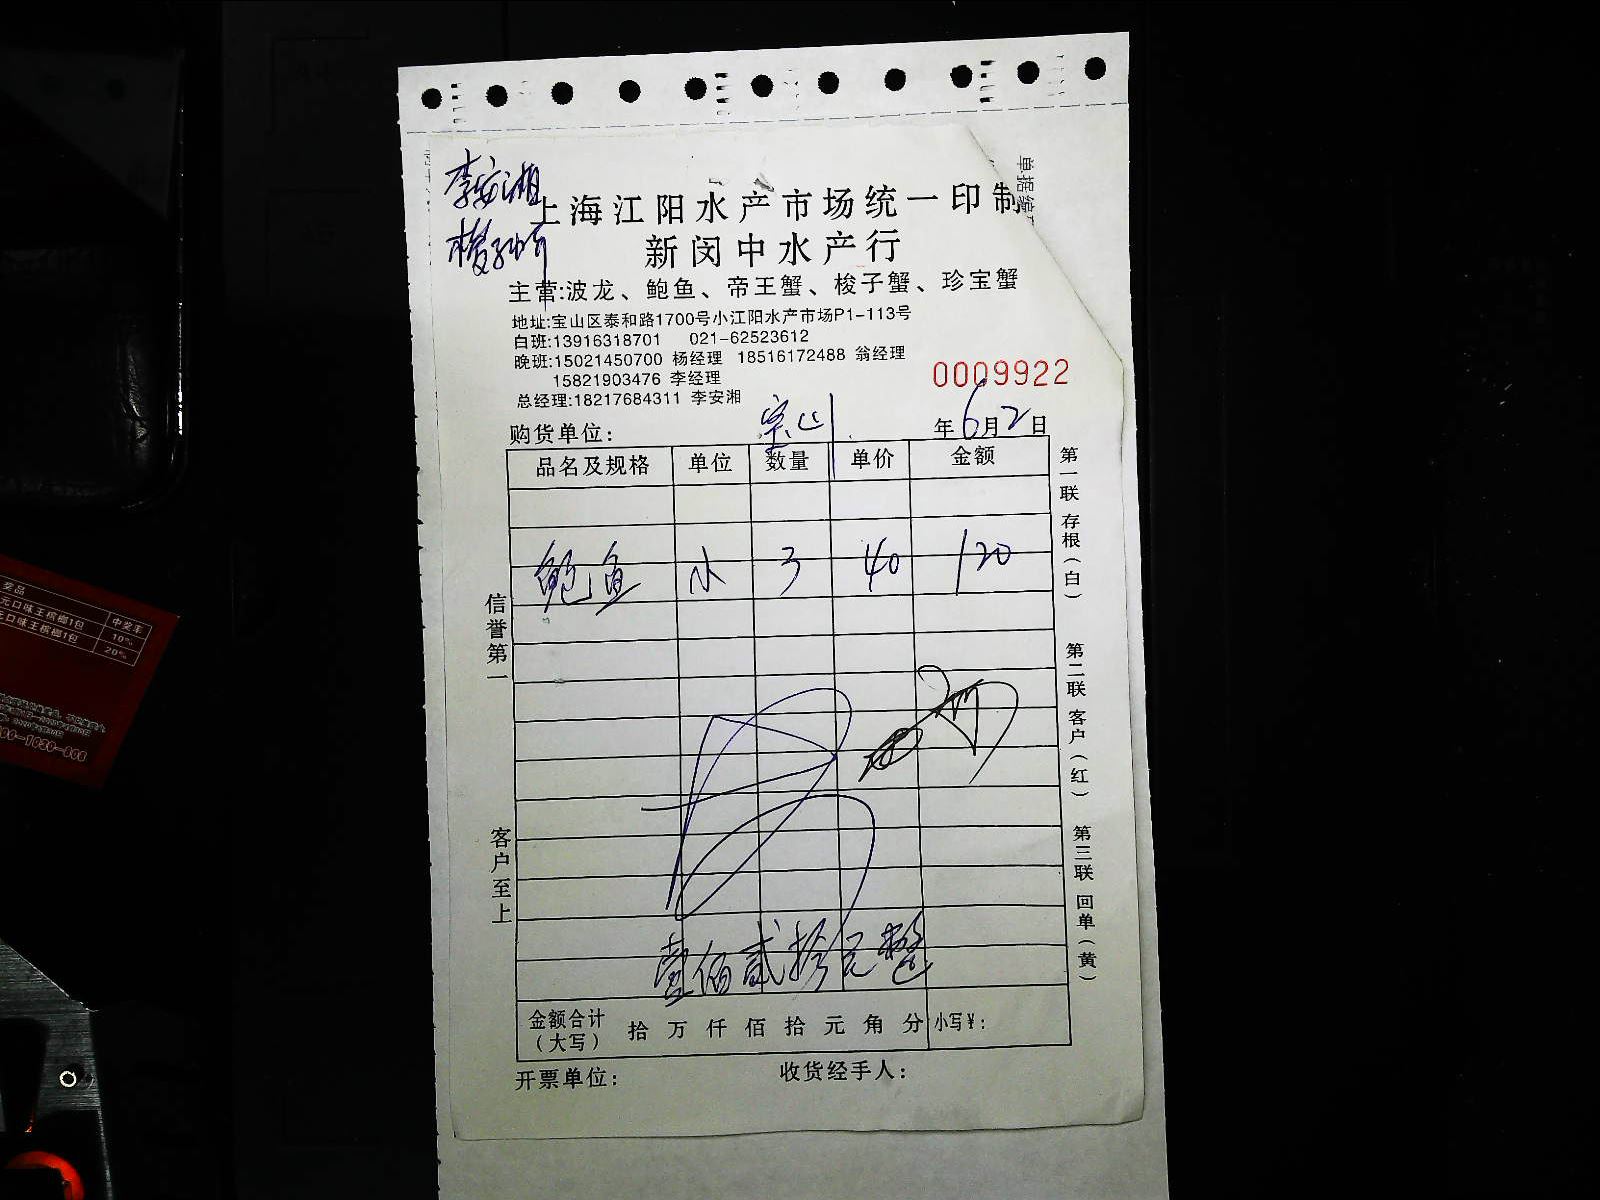 李安湘
上海江阳水产市场统一印制
单据编
新闵中水产行
主营:波龙、鲍鱼、帝王蟹、梭子蟹、珍宝蟹
地址:宝山区泰和路1700号小江阳水产市场P1-113号
白班:13916318701 021-62523612
晚班:15021450700 杨经理 18516172488 翁经理
15821903476 李经理
总经理:18217684311 李安湘
0009922
购货单位: 宝山 年6月2日
品名及规格 单位 数量 单价 金额
鲍鱼 小 3 40 120
壹佰贰拾元整
金额合计(大写) 拾 万 仟 佰 拾 元 角 分 小写¥:
开票单位: 收货经手人:
信誉第一
客户至上
第一联 存根(白)
第二联 客户(红)
第三联 回单(黄)
奖品 中奖率
元口味王槟榔1包 10%
元口味王槟榔1包 20%